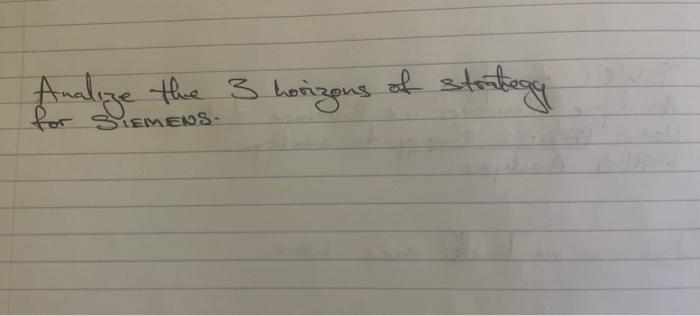 Analize the 3 horizons of strategy
for SIEMENS.